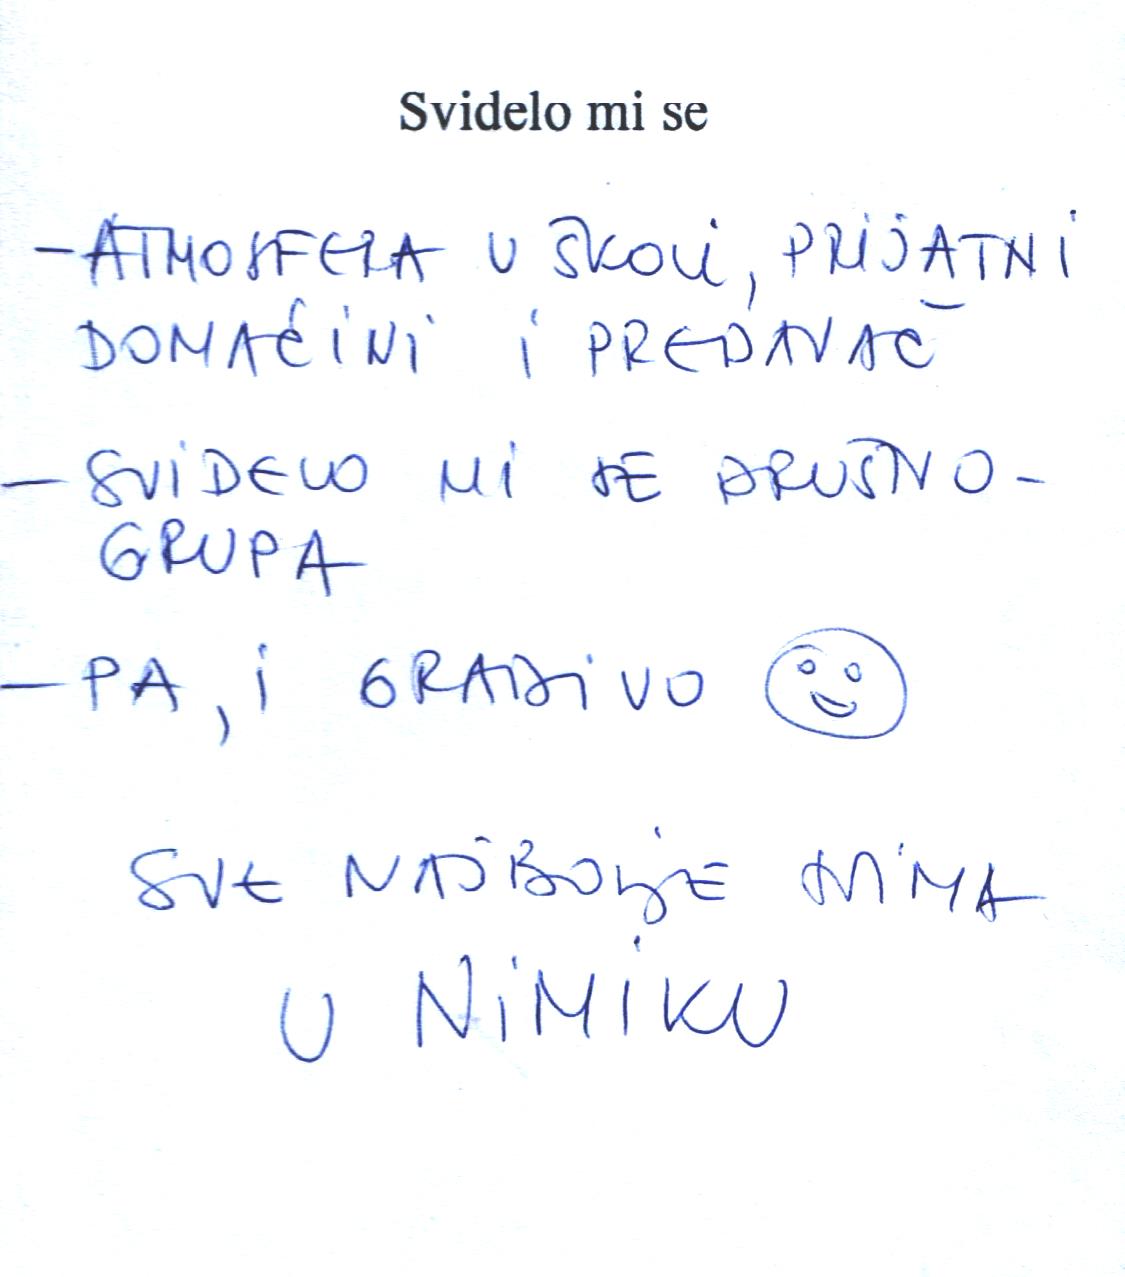 Svidelo mi se
- ATMOSFERA U ŠKOLI, PRIJATNI
DOMAĆINI I PREDAVAČ
- SVIDELO MI SE DRUŠTVO -
GRUPA
- PA, I GRADIVO
SVE NAJBOLJE SVIMA
U NIMIKU